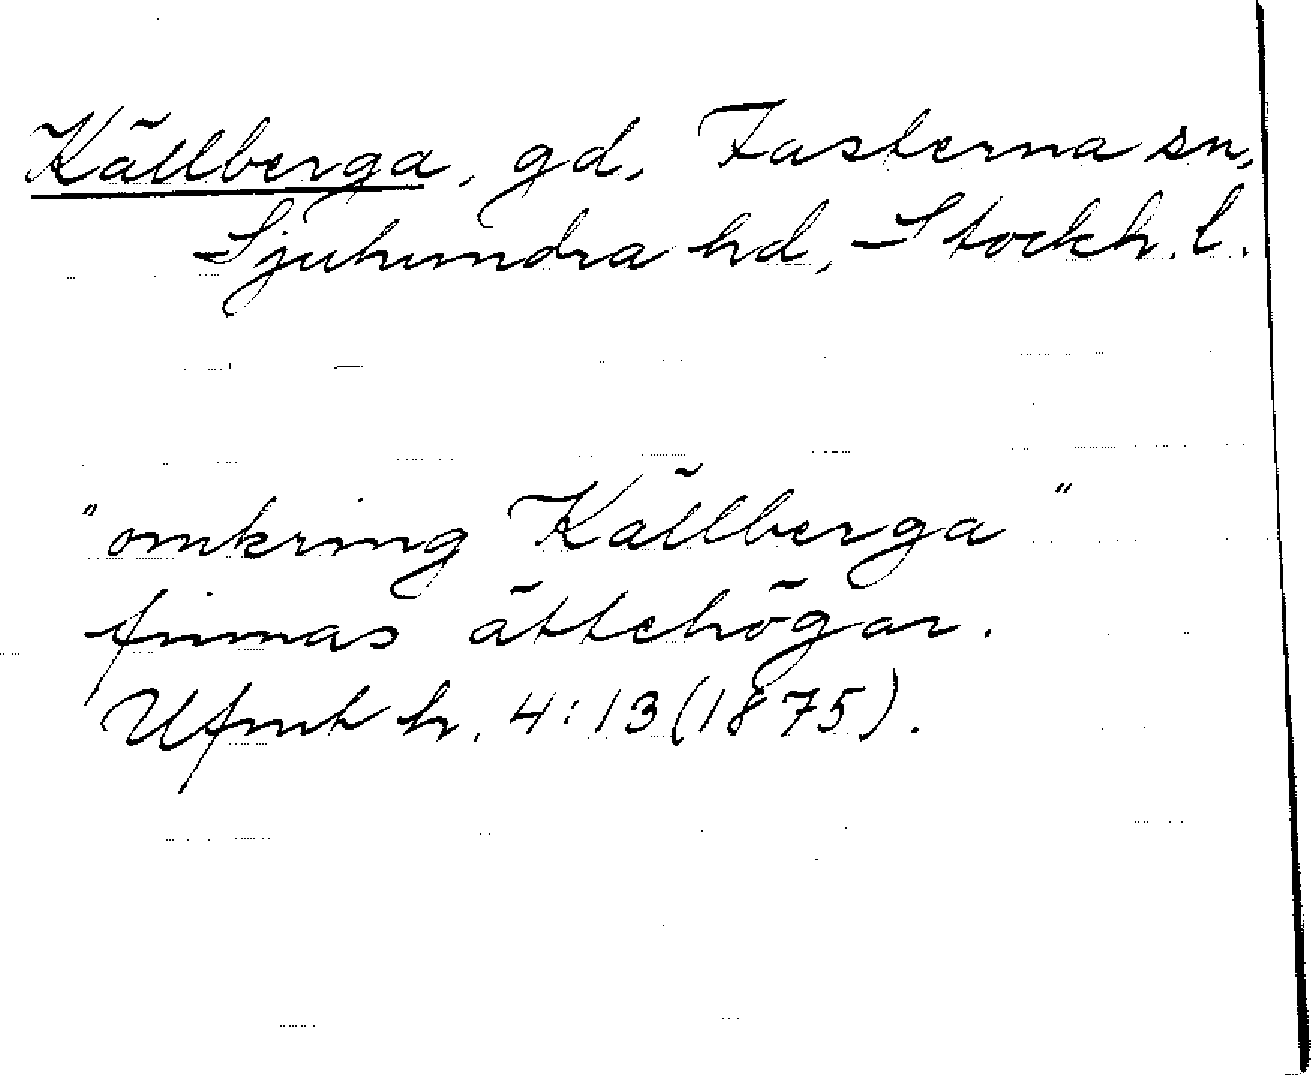 Källberga, gd, Fasterna sn,
Sjuhundra hd, Stockh. l.
"omkring Källberga"
finnas ättehögar.
Ufmt h. 4:13 (1875).